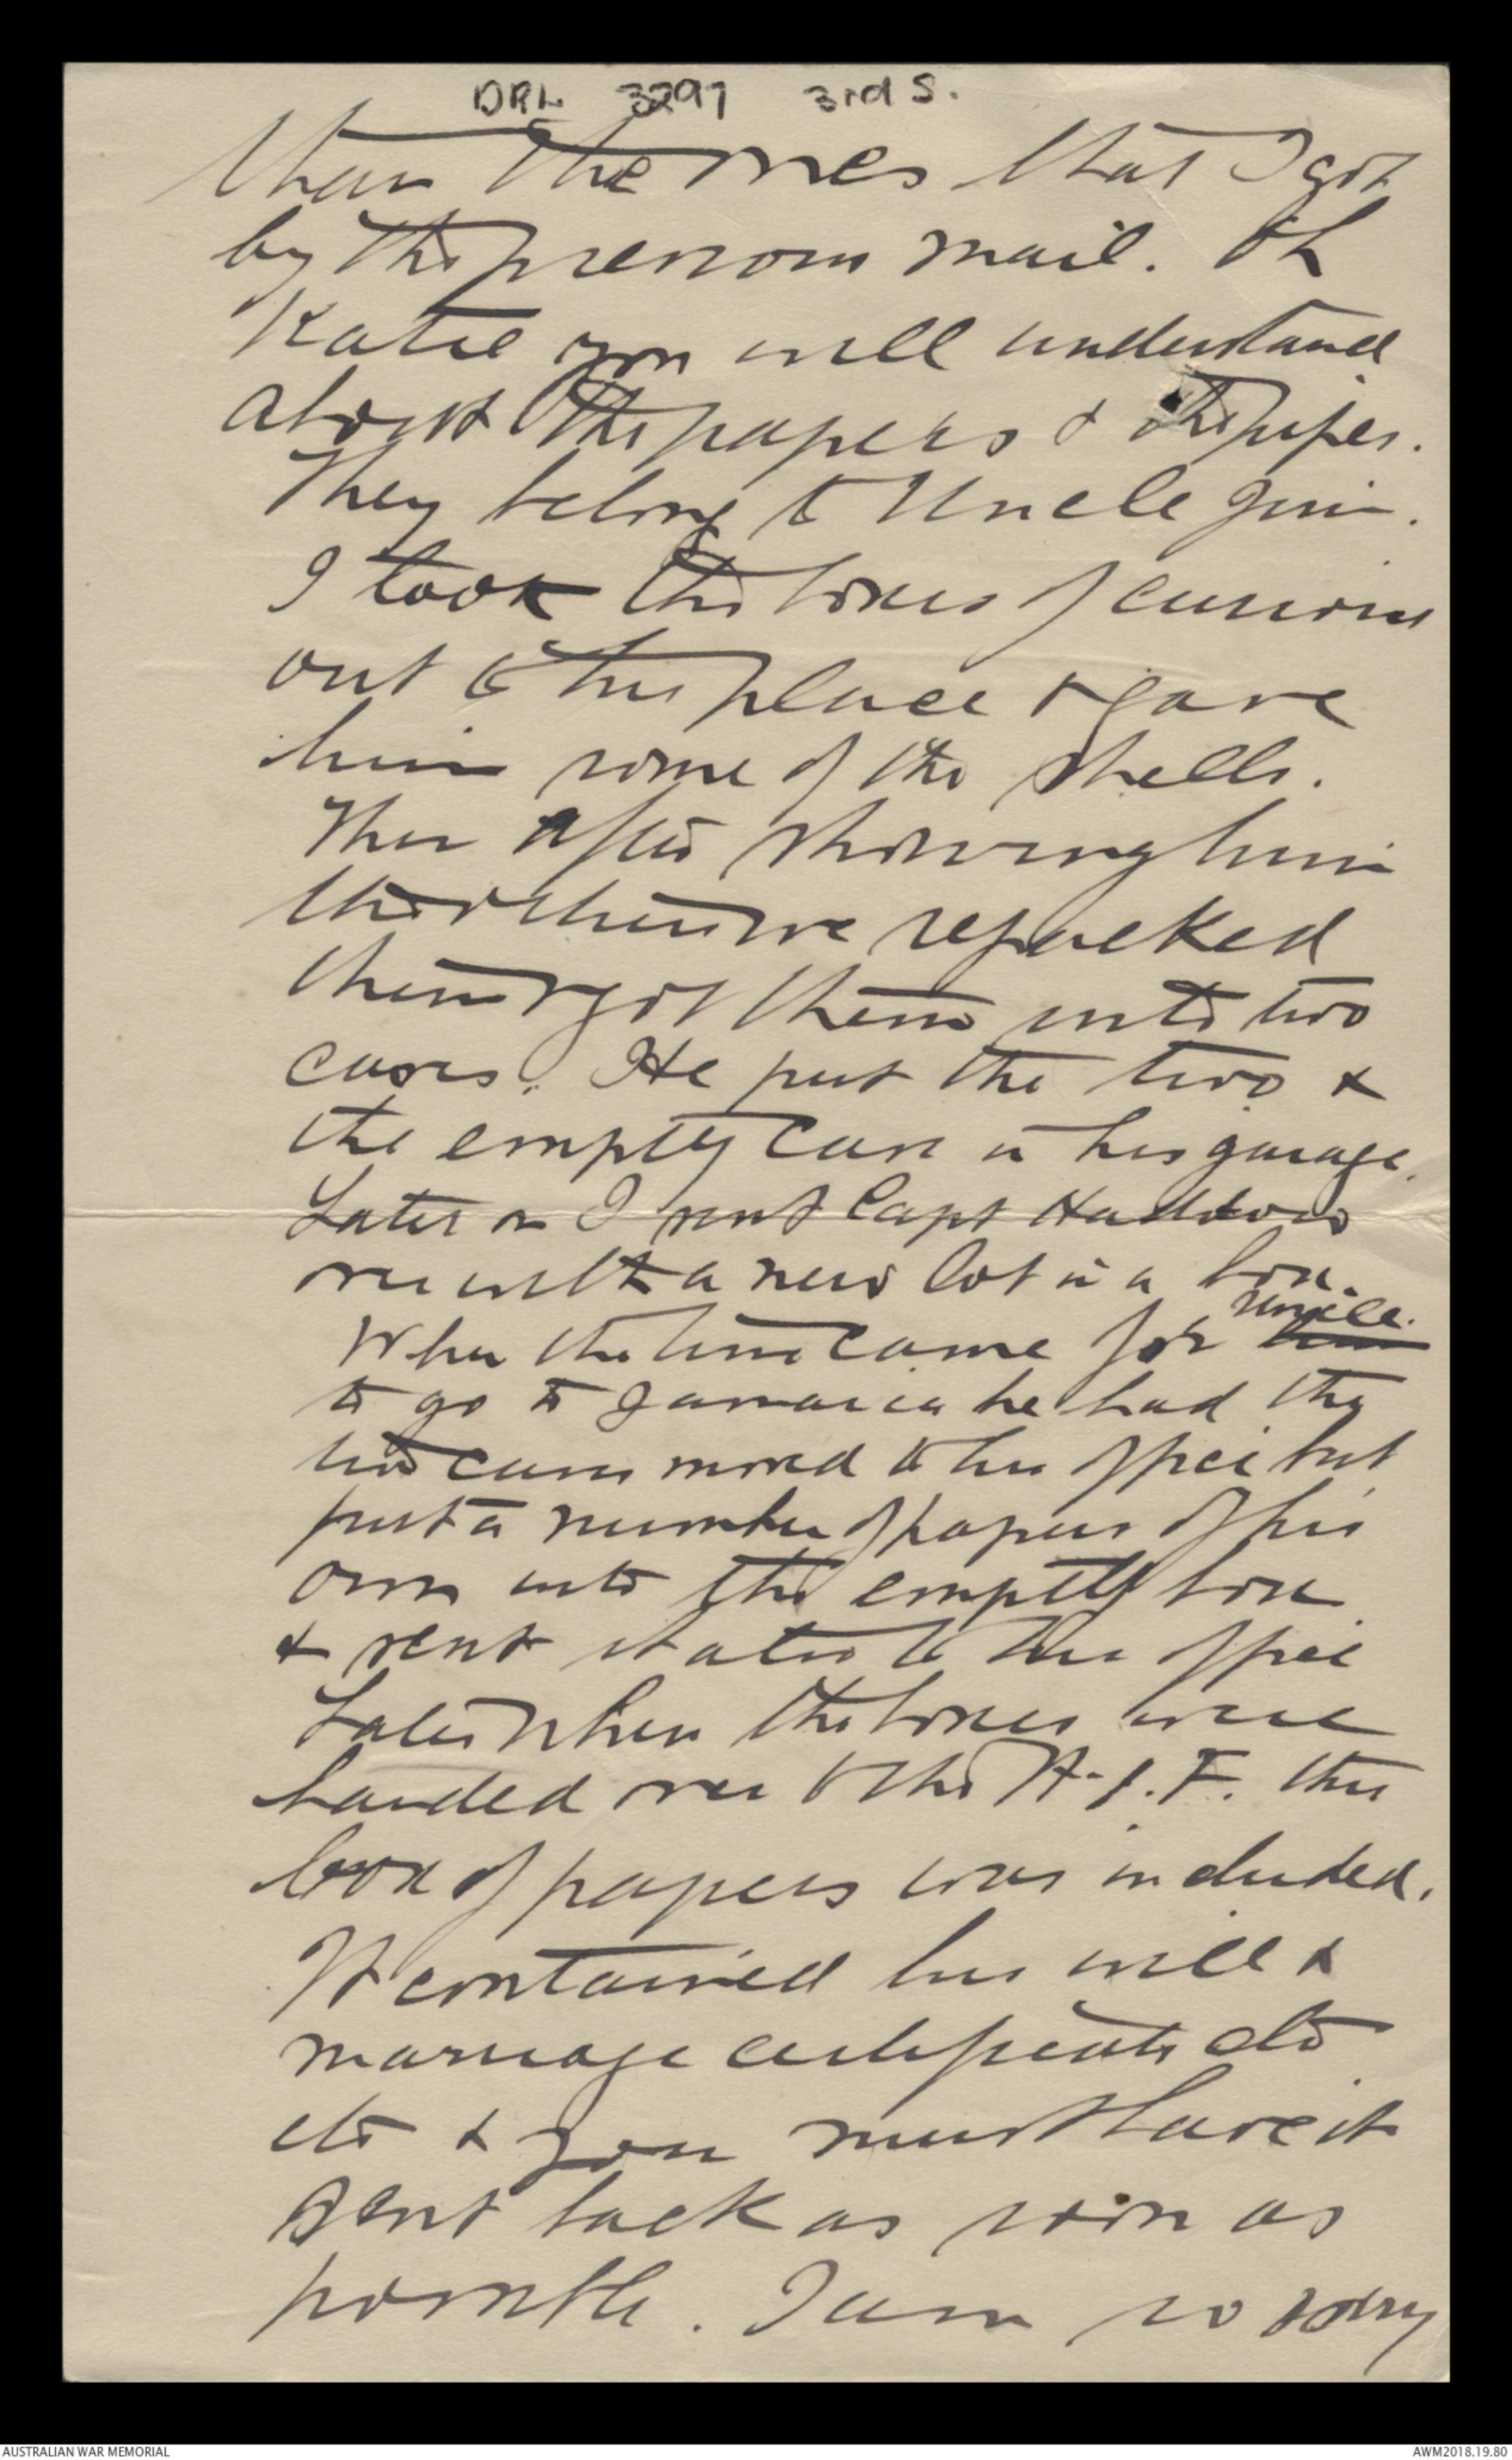 DRL 3297 3rd S.
than the ones that I got
by the previous mail. Oh
Katie you will understand
about the papers & the pipes.
They belong to Uncle Jim.
I took the boxes of curios
out to his place & gave
him some of the shells.
Then after showing him
the others we repacked
them & got them into two
cases. He put the two &
the empty case in his garage.
Later on I sent Capt
over with a new lot in a box.
uncle.
When the time came for him
to go to Jamaica he had the
two cases moved to his office but
put a number of papers of his
own into the empty box
& sent it also to the office
Later when the boxes were
handed over to the A.I.F. this
box of papers was included.
It contained his will &
marriage certificate etc
etc & you must have it
sent back as soon as
possible. I am so sorry
AUSTRALIAN WAR MEMORIAL
AWM2018.19.80